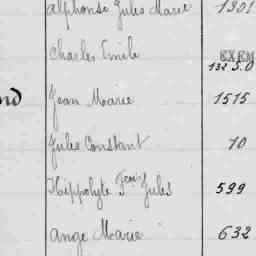 Alphonse Jules Marie 1301
Charles Emile EXEM
132 5.0
nd Jean Marie 1515
Jules Constant 10
Hippolyte Franç Jules 599
Ange Marie 632